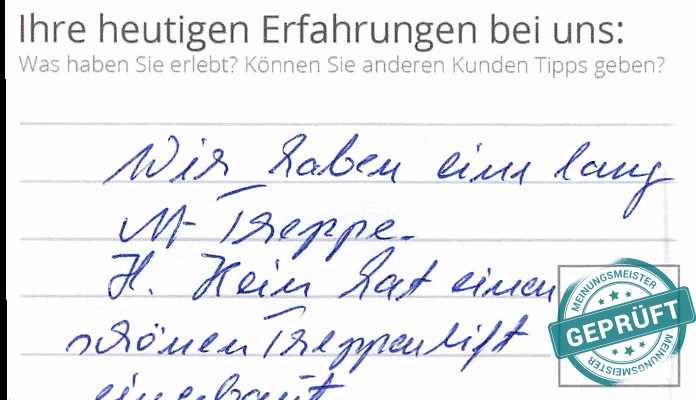 Ihre heutigen Erfahrungen bei uns:
Was haben Sie erlebt? Können Sie anderen Kunden Tipps geben?
Wir haben eine lang
Treppe.
H. Hein hat einen
schönen Treppenlift
eingebaut
MEINUNGSMEISTER
GEPRÜFT
MEINUNGSMEISTER